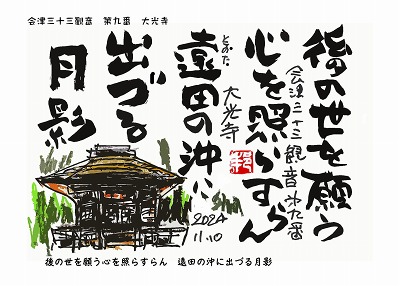 会津三十三観音　第九番　大光寺
後の世を願う
会津三十三観音第九番
心を照らすらん
大光寺
とおだ
遠田の沖に
出づる
月影
Sha
2024
11.10
後の世を願う心を照らすらん　遠田の沖に出づる月影